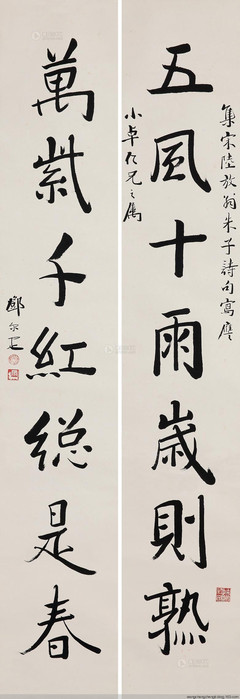 集宋陸放翁朱子詩句寫應
五風十雨歲則熟
小卓仁兄之屬
萬紫千紅緫是春
鄧尔疋